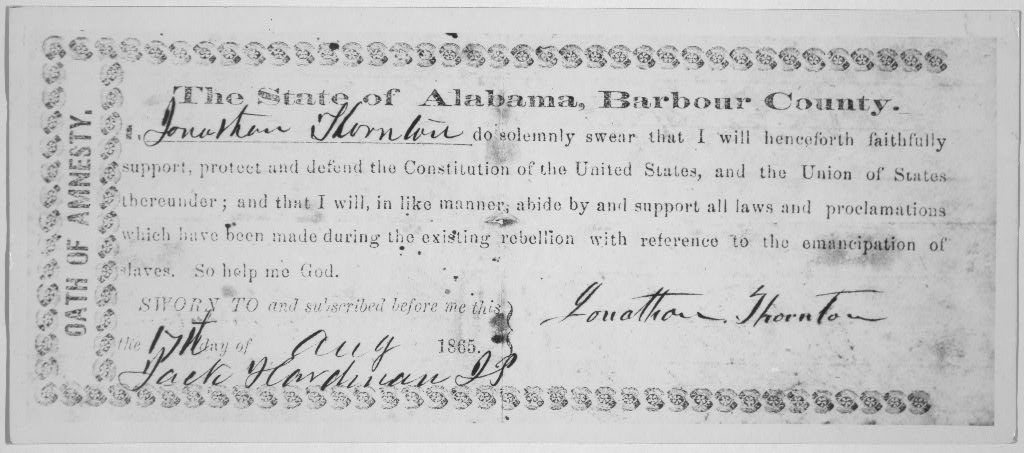 OATH OF AMNESTY.
The State of Alabama, Barbour County.
I, Jonathan Thornton do solemnly swear that I will henceforth faithfully
support, protect and defend the Constitution of the United States, and the Union of States
thereunder; and that I will, in like manner, abide by and support all laws and proclamations
which have been made during the existing rebellion with reference to the emancipation of
slaves. So help me God.
SWORN TO and subscribed before me this
the 17th day of Aug 1865.
Jonathan Thornton
Jack Hardman JP